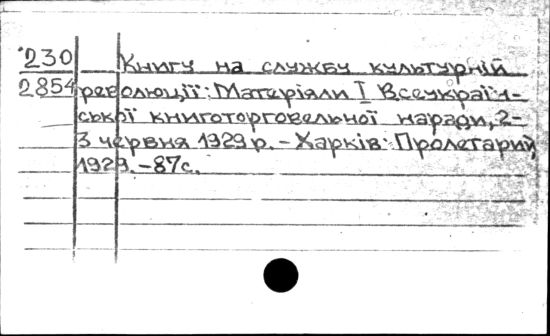 230 Книгу на службу культурній
2854 революції: Матеріяли I Всеукраїн-
ської книготорговельної наради, 2-
3 червня 1929 р. - Харків: Пролетарий,
1929. - 87с.